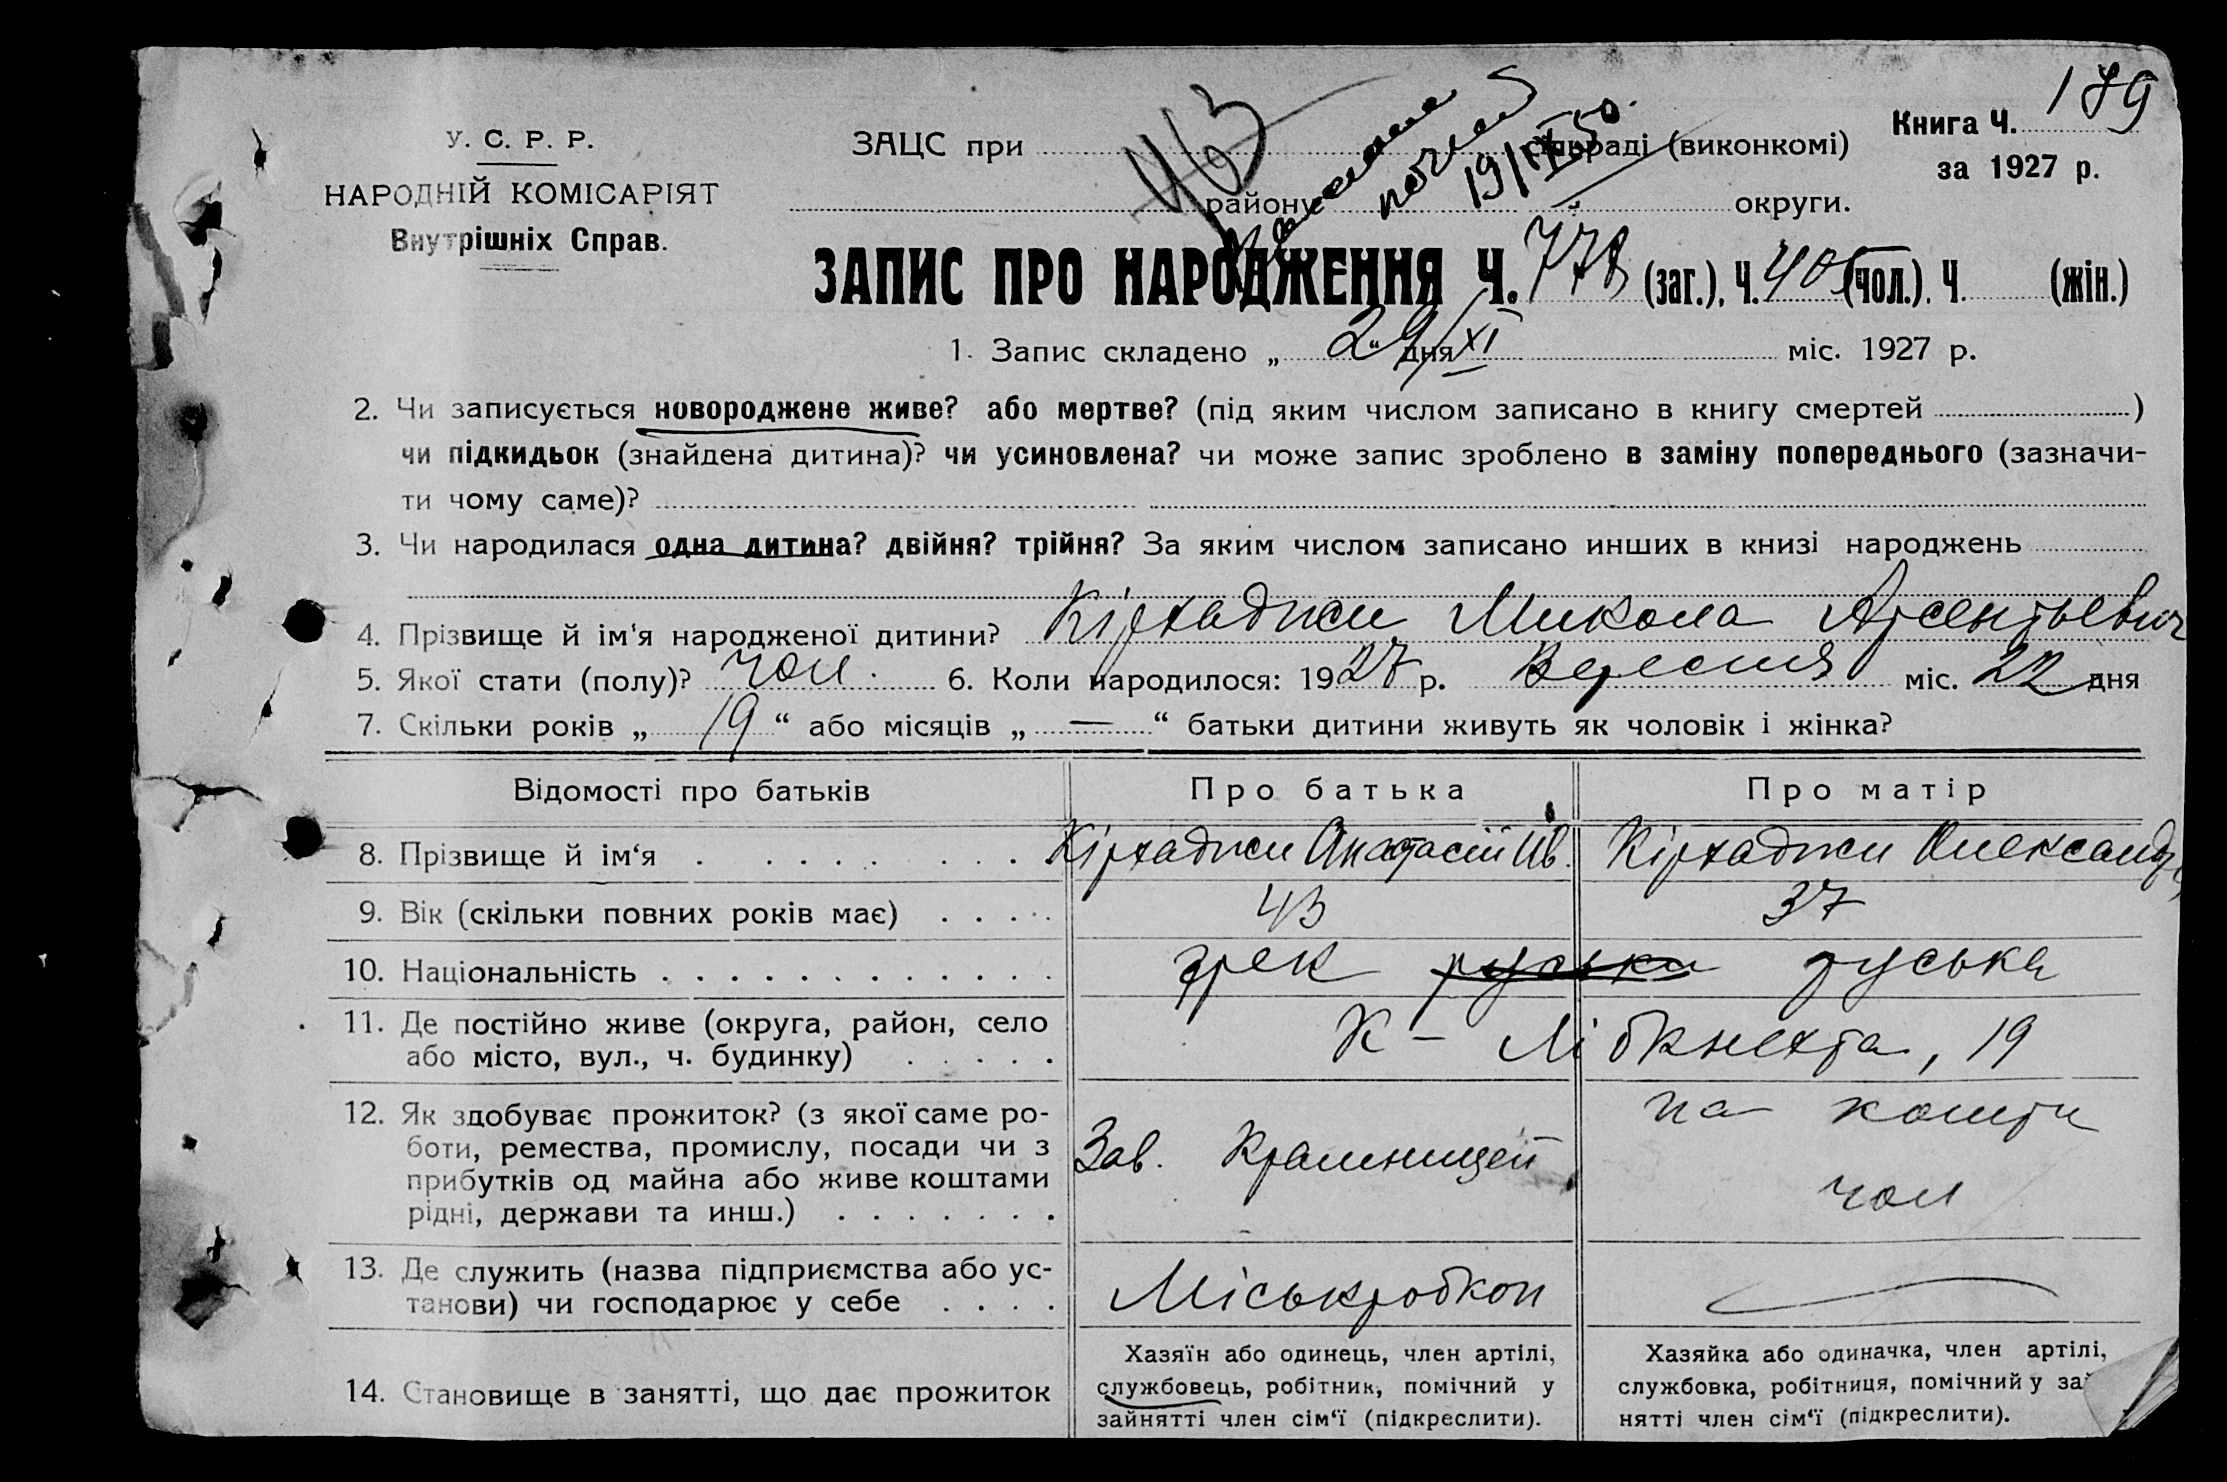 179
У. С. Р. Р.
НАРОДНІЙ КОМІСАРІЯТ
Внутрішніх Справ.
ЗАЦС при сільраді (виконкомі)
463
19/IX 50.
району округи.
Книга Ч.
за 1927 р.
ЗАПИС ПРО НАРОДЖЕННЯ Ч. 778 (заг.), Ч. 405 (чол.), Ч. (жін.)
1. Запис складено „ 29 “ дня XI міс. 1927 р.
2. Чи записується новороджене живе? або мертве? (під яким числом записано в книгу смертей )
чи підкидьок (знайдена дитина)? чи усиновлена? чи може запис зроблено в заміну попереднього (зазначи-
ти чому саме)?
3. Чи народилася одна дитина? двійня? трійня? За яким числом записано инших в книзі народжень
4. Прізвище й ім'я народженої дитини? Кірхаджи Микола Арсентьевич
5. Якої стати (полу)? чол. 6. Коли народилося: 1927 р. Вересня міс. 22 дня
7. Скільки років „ 19 “ або місяців „ — “ батьки дитини живуть як чоловік і жінка?
Відомості про батьків Про батька Про матір
8. Прізвище й ім‘я Кірхаджи Анастасій Ив. Кірхаджи Олександ
9. Вік (скільки повних років має) 43 37
10. Національність грек руська руська
11. Де постійно живе (округа, район, село
або місто, вул., ч. будинку) К - Лібкнехта, 19
12. Як здобуває прожиток? (з якої саме ро-
боти, ремества, промислу, посади чи з
прибутків од майна або живе коштами
рідні, держави та инш.)
Зав. Крамницей
на кошти
чол
13. Де служить (назва підприємства або ус-
танови) чи господарює у себе Міськробкоп
14. Становище в занятті, що дає прожиток
Хазяїн або одинець, член артілі,
службовець, робітник, помічний у
зайнятті член сім‘ї (підкреслити).
Хазяйка або одиначка, член артілі,
службовка, робітниця, помічний у зай
нятті член сім‘ї (підкреслити).